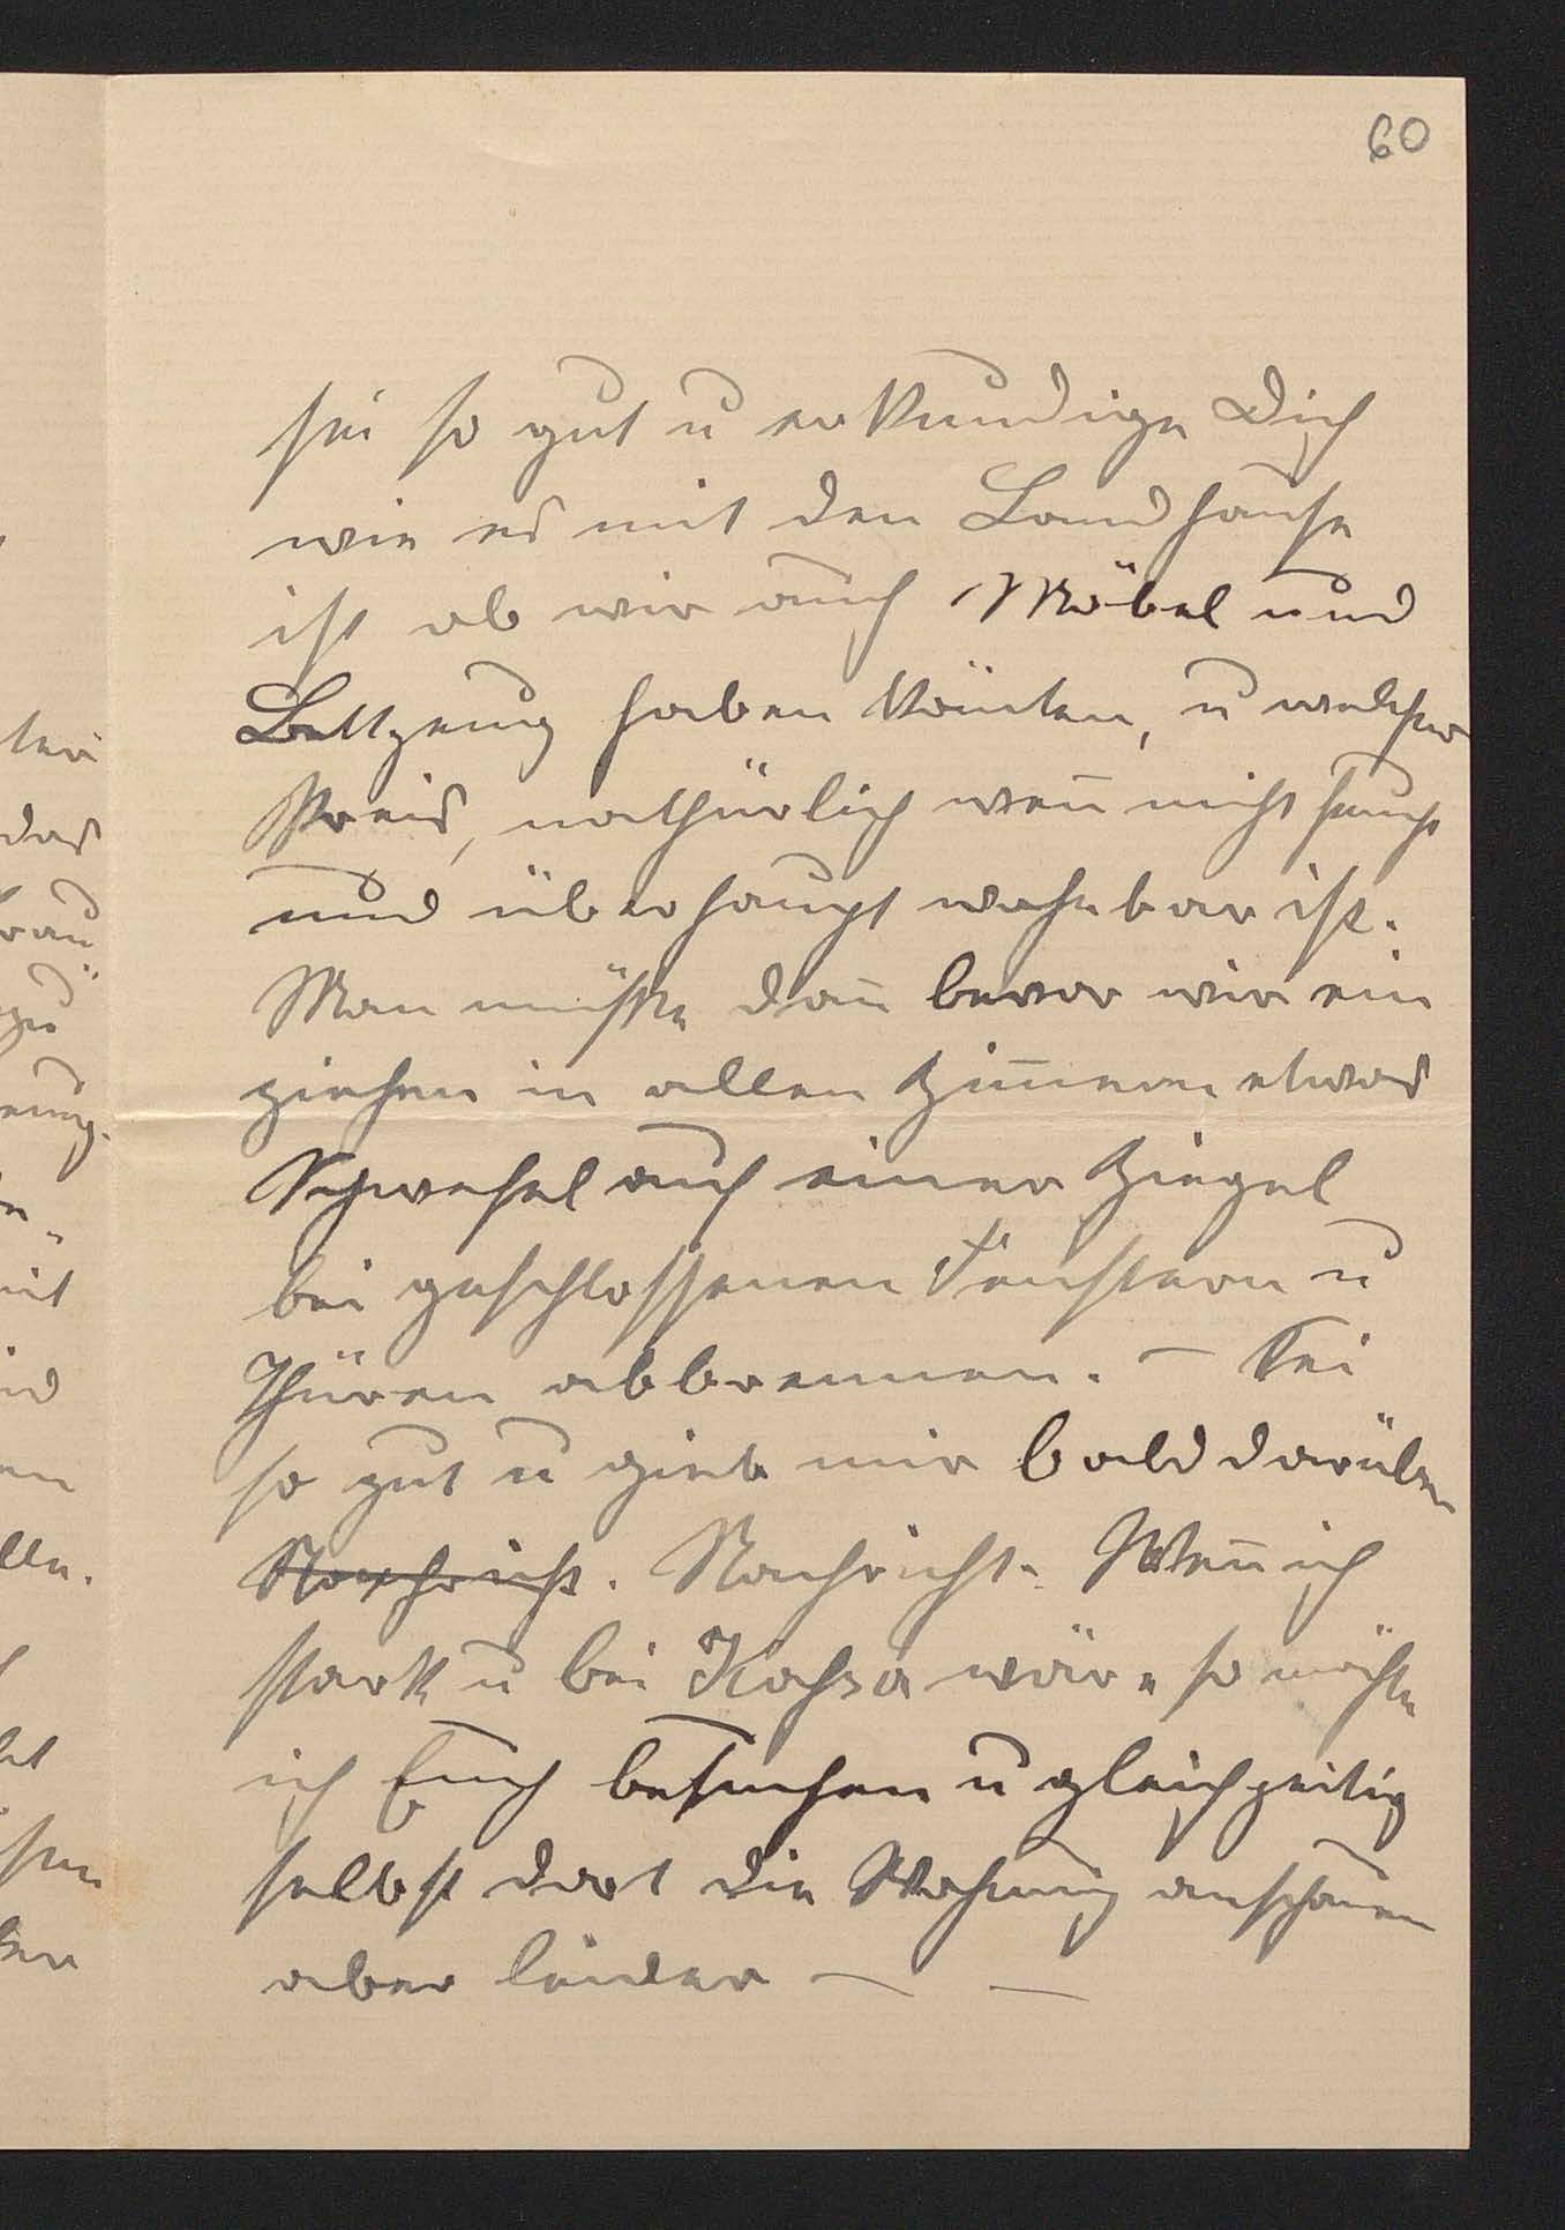 60
sei so gut u erkundige Dich
wie es mit den Landhause
ist ob wir auch Möbel und
Bettzeug haben könten, u welcher
Preis, nathürlich weñ nicht feucht
und überhaupt wohnbar ist.
Man müßte dañ bevor wir ein
ziehen in allen Zim̄ern etwas
Schwefel auf einer Ziegel
bei geschlossenen Fenstern u
Thüren abbrennen. – Sei
so gut u gieb mir bald darüber
Nachricht. Nachricht. Weñ ich
stark u bei Kassa wäre so möchte
ich Euch besuchen u gleichzeitig
selbst dort die Wohnung anschauen
aber leider — —
das
zu
mit